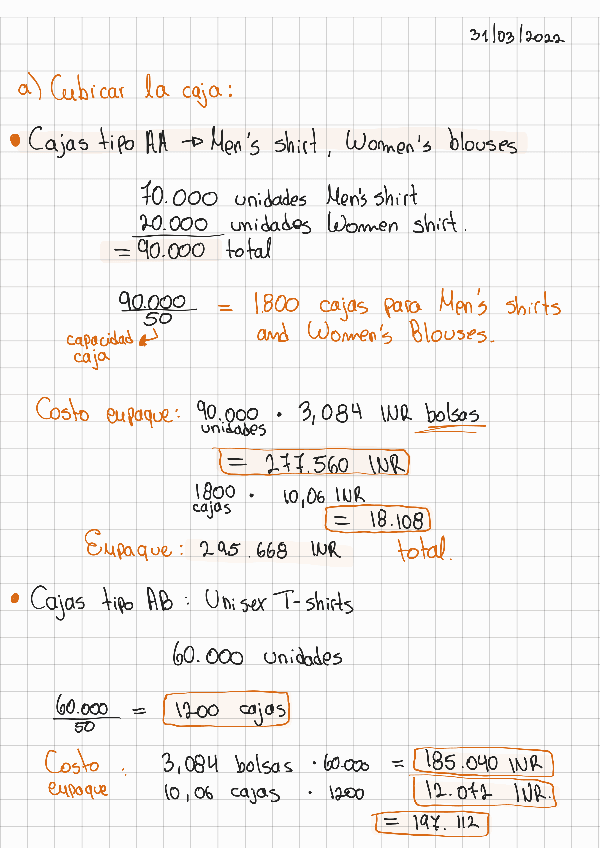 31/03/2022
a) Cubicar la caja:
• Cajas tipo AA → Men's shirt, Women's blouses
70.000 unidades Men's shirt
20.000 unidades Women shirt.
= 90.000 total
90.000 / 50 = 1.800 cajas para Men's shirts
capacidad caja
and Women's Blouses.
Costo empaque: 90.000 unidades · 3,084 INR bolsas
= 277.560 INR
1800 cajas · 10,06 INR
= 18.108
Empaque: 295.668 INR total.
• Cajas tipo AB: Unisex T-shirts
60.000 unidades
60.000 / 50 = 1200 cajas
Costo empaque: 3,084 bolsas · 60.000 = 185.040 INR
10,06 cajas · 1200 12.072 INR.
= 197.112